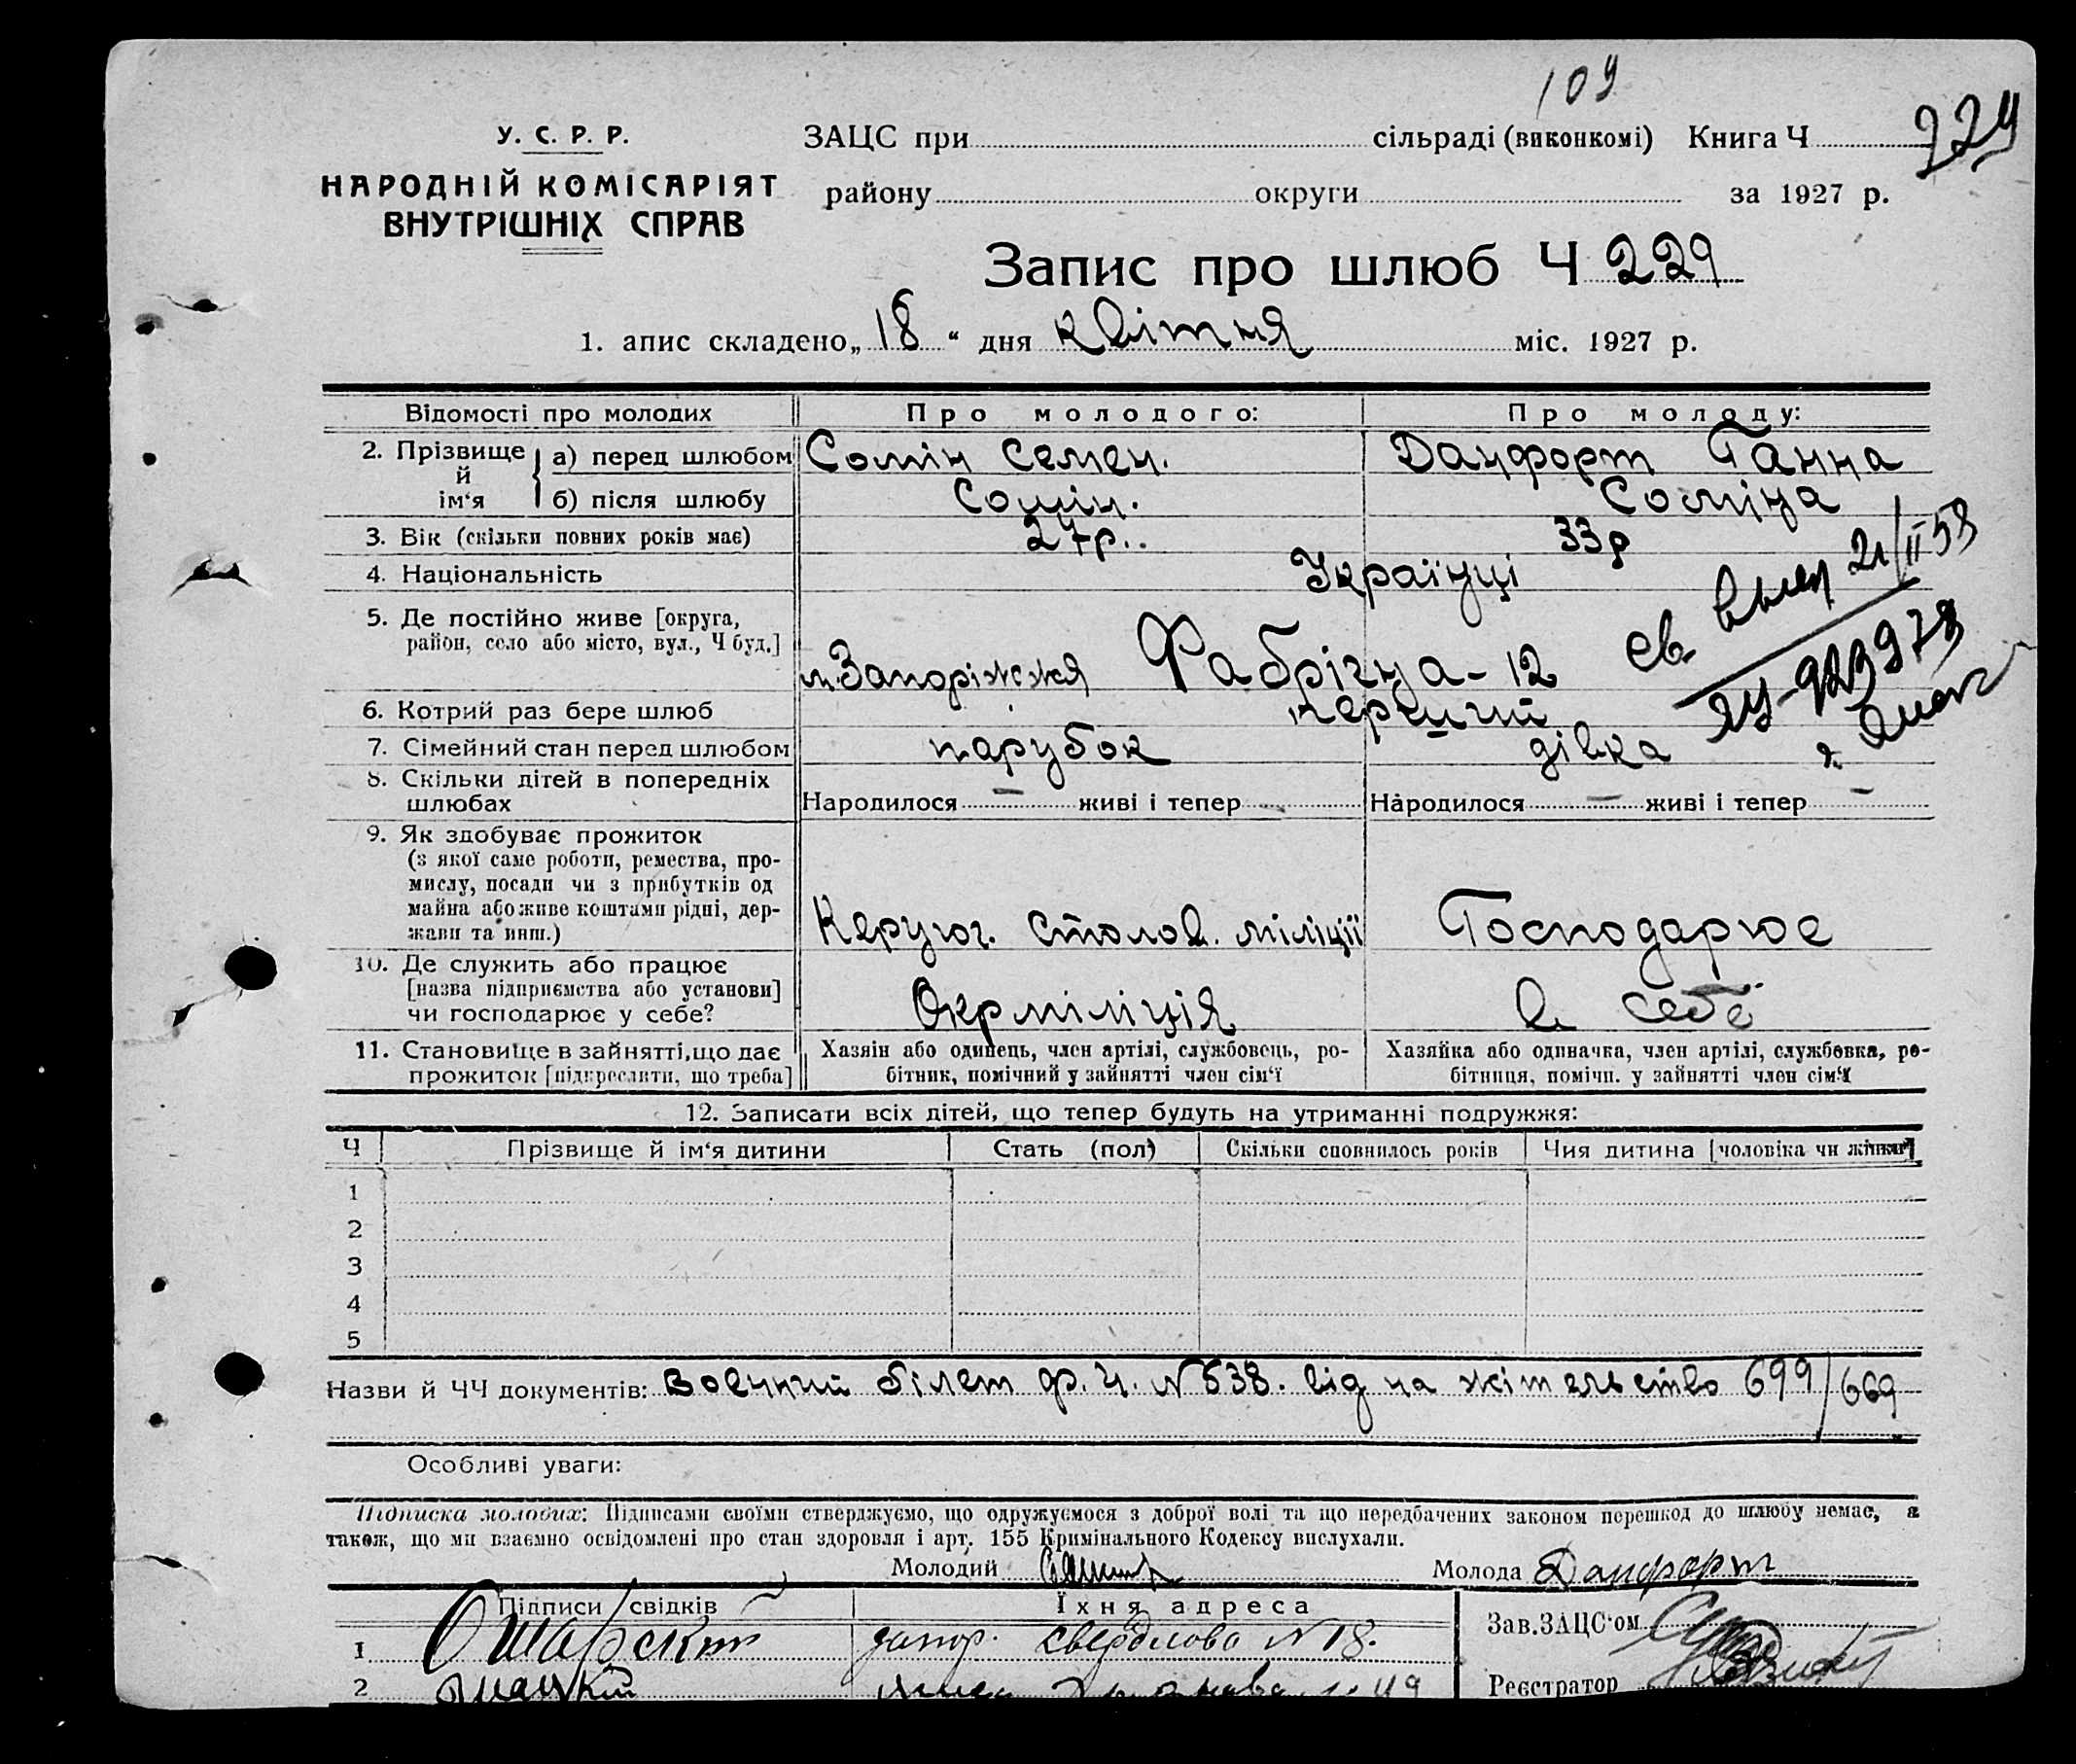 109
У. С. Р. Р.
НАРОДНІЙ КОМІСАРІЯТ
ВНУТРІШНІХ СПРАВ
ЗАЦС при сільраді (виконкомі) Книга Ч 224
району округи за 1927 р.
Запис про шлюб Ч 229
1. апис складено „18“ дня квітня міс. 1927 р.
Відомості про молодих Про молодого: Про молоду:
2. Прізвище й ім‘я а) перед шлюбом Сомін Семен. Данфорт Ганна
б) після шлюбу Сомін. Соміна
3. Вік (скільки повних років має) 27р.. 33р
4. Національність Українці
5. Де постійно живе [округа,
район, село або місто, вул., Ч буд.] м. Запоріжжя Фабрічна - 12
св 21/II 53
6. Котрий раз бере шлюб перший
7. Сімейний стан перед шлюбом парубок дівка
8. Скільки дітей в попередніх
шлюбах Народилося — живі і тепер Народилося — живі і тепер —
9. Як здобуває прожиток
(з якої саме роботи, ремества, про-
мислу, посади чи з прибутків од
майна або живе коштами рідні, дер-
жави та инш.) Керуюч. столов. міліції Господарює
10. Де служить або працює
[назва підприємства або установи]
чи господарює у себе? Окрміліція в себе
11. Становище в зайнятті, що дає Хазяін або одинець, член артілі, службовець, ро- Хазяйка або одиначка, член артілі, службовка, ро-
прожиток [підкреслити, що треба] бітник, помічний у зайнятті член сім‘ї бітниця, помічн. у зайнятті член сім‘ї
12. Записати всіх дітей, що тепер будуть на утриманні подружжя:
Ч Прізвище й ім‘я дитини Стать (пол) Скільки сповнилось років Чия дитина [чоловіка чи жінки]
1
2
3
4
5
Назви й ЧЧ документів: Воєнний білет ф. Ч. N 638. від на жітельство 699/669
Особливі уваги:
Підписка молодих: Підписами своїми стверджуємо, що одружуємося з доброї волі та що передбачених законом перешкод до шлюбу немає, а
також, що ми взаємно освідомлені про стан здоровля і арт. 155 Кримінального Кодексу вислухали.
Молодий Молода Данфорт
Підписи свідків Їхня адреса
Зав.ЗАЦС‘ом
1 запор. свердлова N 18.
2 49
Реєстратор